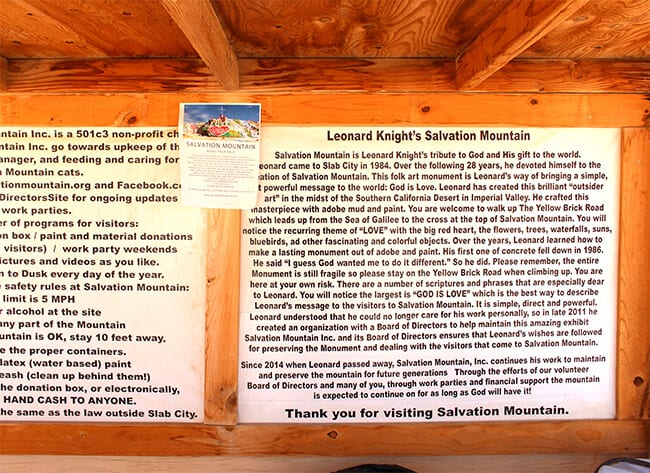 ntain Inc. is a 501c3 non-profit ch
ntain Inc. go towards upkeep of th
anager, and feeding and caring for
tain cats.
tionmountain.org and Facebook.co
DirectorsSite for ongoing updates
work parties.
er of programs for visitors:
on box / paint and material donations
visitors) / work party weekends
ictures and videos as you like.
n to Dusk every day of the year.
e safety rules at Salvation Mountain:
limit is 5 MPH
r alcohol at the site
any part of the Mountain
ountain is OK, stay 10 feet away.
e the proper containers.
latex (water based) paint
eash (clean up behind them!)
the donation box, or electronically,
HAND CASH TO ANYONE.
the same as the law outside Slab City.
SALVATION MOUNTAIN
Leonard Knight's Salvation Mountain
Salvation Mountain is Leonard Knight's tribute to God and His gift to the world.
Leonard came to Slab City in 1984. Over the following 28 years, he devoted himself to the
eation of Salvation Mountain. This folk art monument is Leonard's way of bringing a simple,
t powerful message to the world: God is Love. Leonard has created this brilliant "outsider
art" in the midst of the Southern California Desert in Imperial Valley. He crafted this
masterpiece with adobe mud and paint. You are welcome to walk up The Yellow Brick Road
which leads up from the Sea of Galilee to the cross at the top of Salvation Mountain. You will
notice the recurring theme of "LOVE" with the big red heart, the flowers, trees, waterfalls, suns,
bluebirds, ad other fascinating and colorful objects. Over the years, Leonard learned how to
make a lasting monument out of adobe and paint. His first one of concrete fell down in 1986.
He said "I guess God wanted me to do it different." So he did. Please remember, the entire
Monument is still fragile so please stay on the Yellow Brick Road when climbing up. You are
here at your own risk. There are a number of scriptures and phrases that are especially dear
to Leonard. You will notice the largest is "GOD IS LOVE" which is the best way to describe
Leonard's message to the visitors to Salvation Mountain. It is simple, direct and powerful.
Leonard understood that he could no longer care for his work personally, so in late 2011 he
created an organization with a Board of Directors to help maintain this amazing exhibit
Salvation Mountain Inc. and its Board of Directors ensures that Leonard's wishes are followed
for preserving the Monument and dealing with the visitors that come to Salvation Mountain.
Since 2014 when Leonard passed away, Salvation Mountain, Inc. continues his work to maintain
and preserve the mountain for future generations Through the efforts of our volunteer
Board of Directors and many of you, through work parties and financial support the mountain
is expected to continue on for as long as God will have it!
Thank you for visiting Salvation Mountain.